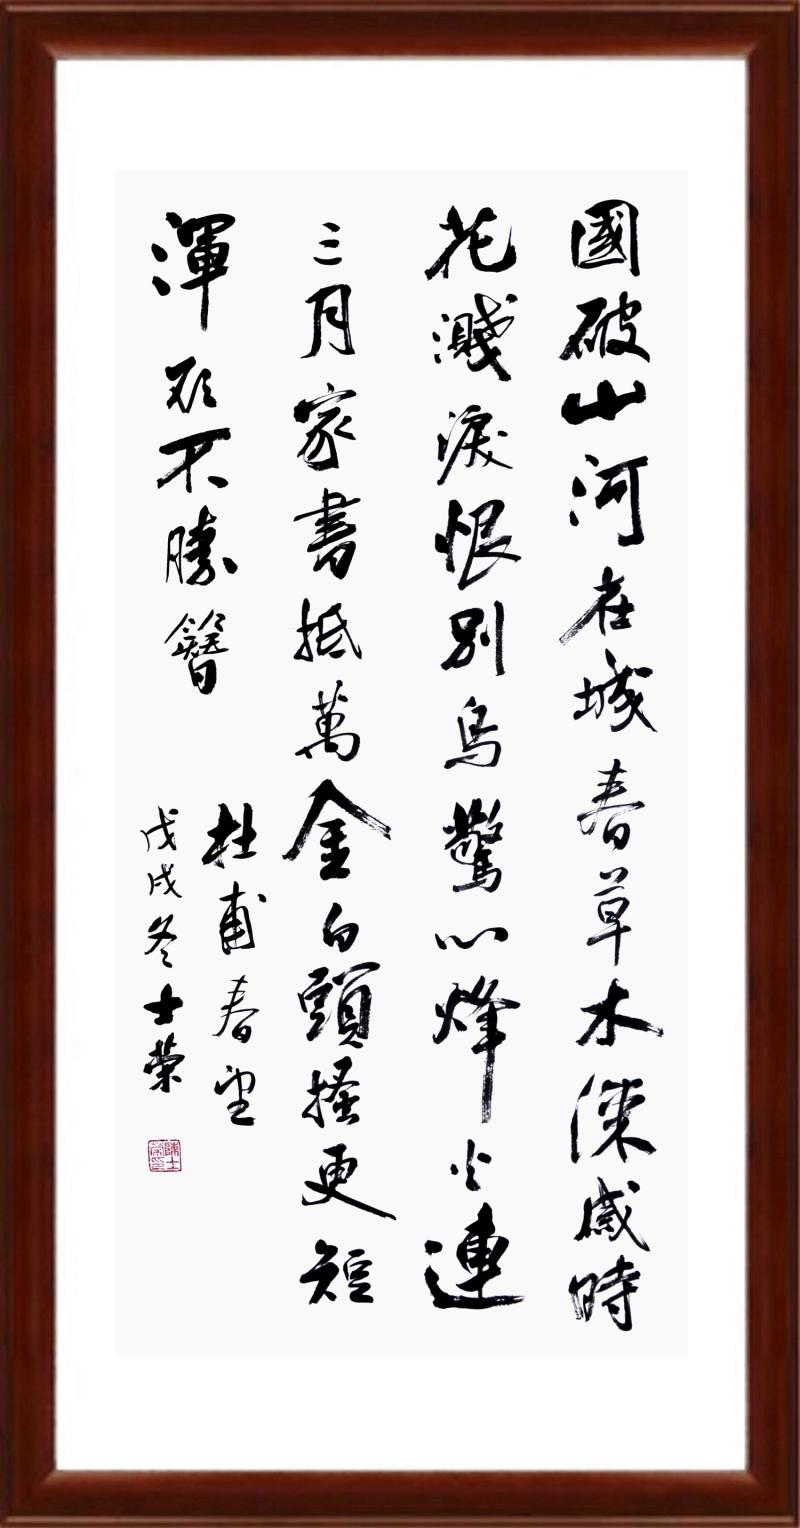 國破山河在城春草木深感時
花濺淚恨別鳥驚心烽火連
三月家書抵萬金白頭搔更短
渾欲不勝簪
杜甫春望
戊戌冬士榮
陳士榮印